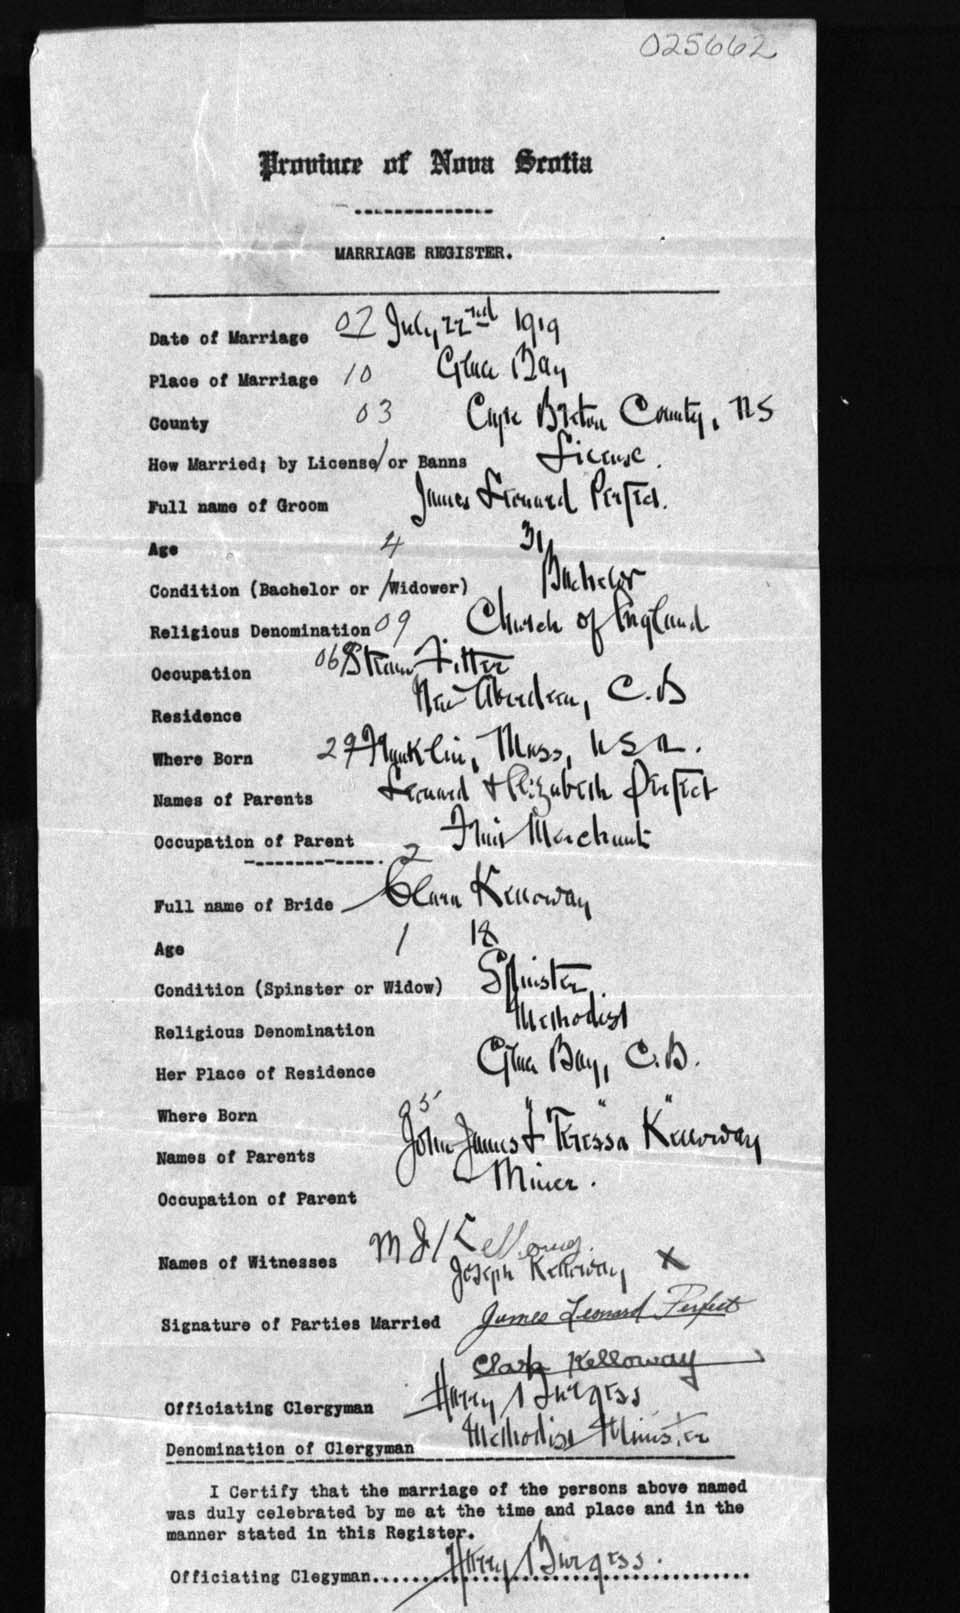 025662
Province of Nova Scotia
MARRIAGE REGISTER.
Date of Marriage 07 July 22nd 1919
Place of Marriage 10 Glace Bay
County 03 Cape Breton County, NS
How Married; by License/or Banns License.
Full name of Groom James Leonard Perfect.
Age 4 31
Condition (Bachelor or /Widower) Bachelor
Religious Denomination 09 Church of England
Occupation 068 Steam Fitter
Residence New Aberdeen, C.B
Where Born 29 Franklin, Mass, USA.
Names of Parents Leonard & Elizabeth Perfect
Occupation of Parent Merchant
2
Full name of Bride Clara Kelloway
Age 1 18
Condition (Spinster or Widow) Spinster
Religious Denomination Methodist
Her Place of Residence Glace Bay, C.B.
Where Born 95 " " "
Names of Parents John James & Teressa Kelloway
Occupation of Parent Miner.
Names of Witnesses Kelloway.
Joseph Kelloway X
Signature of Parties Married James Leonard Perfect
Clara Kelloway
Officiating Clergyman Harry Burgess
Denomination of Clergyman Methodist Minister
I Certify that the marriage of the persons above named
was duly celebrated by me at the time and place and in the
manner stated in this Register.
Officiating Clegyman..... Harry Burgess.